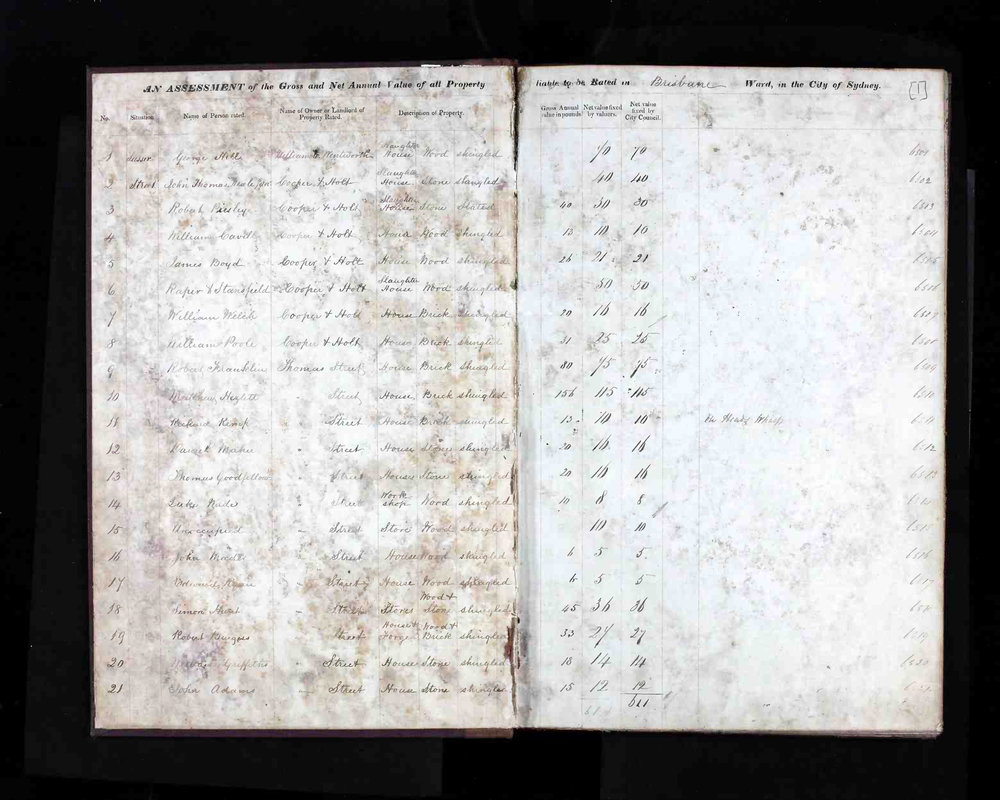 AN ASSESSMENT of the Gross and Net Annual Value of all Property liable to be Rated in Brisbane Ward, in the City of Sydney. [1]
No. Situation Name of Person rated. Name of Owner or Landlord of Property Rated. Description of Property. Gross Annual value in pounds Net value fixed by valuers. Net value fixed by City Council.
1 Sussex George Hill William C Wentworth Slaughter House Wood shingled 70 70
2 Street John Thomas Cooper & Holt Slaughter House Stone shingled 40 40
3 Robert Cooper & Holt Slaughter House Stone Slated 40 30 30
4 William Cooper & Holt House Wood shingled 13 10 10
5 James Boyd Cooper & Holt House Wood shingled 26 21 21
6 Raper & Stansfield Cooper & Holt Slaughter House Wood shingled 30 30
7 William Welch Cooper & Holt House Brick shingled 20 16 16
8 William Poole Cooper & Holt House Brick shingled 31 25 25
9 Robert Franklin Thomas Street House Brick Shingled 80 75 75
10 Matthew Street House Brick shingled 156 115 115
11 Richard Kemp " Street House Brick shingled 13 10 10
12 Daniel " Street House Stone shingled 20 16 16
13 Thomas Goodfellow " Street House Stone shingled 20 16 16
14 Luke " Street Work shop Wood shingled 10 8 8
15 Unoccupied " Street Store Wood shingled 10 10
16 John " Street House Wood shingled 6 5 5
17 Edward " Street House Wood shingled 6 5 5
18 Simon " Street Stores Wood & Stone shingled 45 36 36
19 Robert Burgess " Street House & Forge Wood & Brick shingled 33 27 27
20 Griffiths " Street House Stone shingled 18 14 14
21 John Adams " Street House Stone shingled 15 12 12
611 611